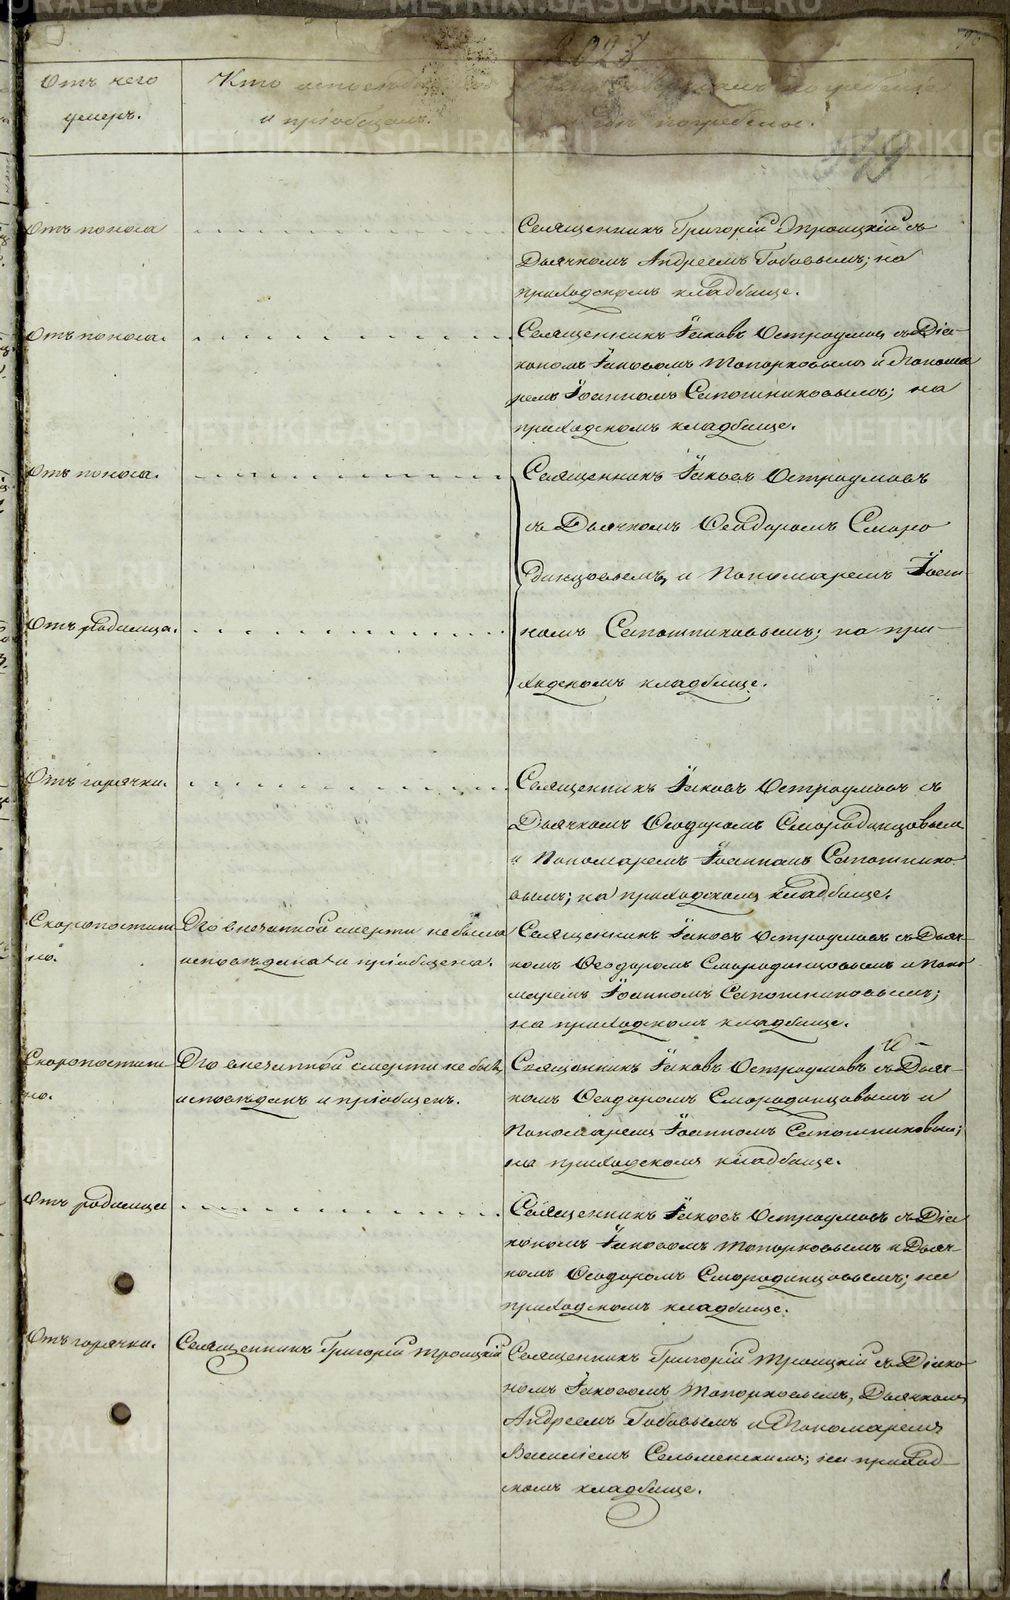 1023
Отъ чего
умеръ.
Кто исповѣдывалъ
и пріобщалъ.
погребеніе
и гдѣ погребены.
Отъ поноса
Священникъ Григорій Троицкій съ
Дьячкомъ Андреемъ Бабовымъ; на
приходскомъ кладбище.
Отъ поноса.
Священникъ Іаковъ Остроумовъ съ Діа-
кономъ Іаковомъ Топорковымъ и Понома
ремъ Іоанномъ Сапожниковымъ; на
приходскомъ кладбище.
Отъ поноса.
Священникъ Іаковъ Остроумовъ
съ Дьячкомъ Ѳеодоромъ Сморо
динцовымъ, и Пономаремъ Іоан-
Отъ родимца.
номъ Сапожниковымъ; на при-
ходскомъ кладбище.
Отъ горячки.
Священникъ Іаковъ Остроумовъ съ
Дьячкомъ Ѳеодоромъ Смородинцовымъ
и Пономаремъ Іоанномъ Сапожнико-
вымъ; на приходскомъ кладбище.
Скоропостиж
но.
По внезапной смерти не была
исповѣдана и пріобщена.
Священникъ Іаковъ Остроумовъ съ Дьяч-
комъ Ѳеодоромъ Смородинцовымъ и Поно
маремъ Іоанномъ Сапожниковымъ;
на приходскомъ кладбище.
Скоропостиж
но.
По внезапной смерти не былъ
исповѣданъ и пріобщенъ.
Священникъ Іаковъ Остроумовъ съ Дьяч-
комъ Ѳеодоромъ Смородинцовымъ и
Пономаремъ Іоанномъ Сапожниковымъ;
на приходскомъ кладбище.
Отъ родимца
Священникъ Іаковъ Остроумовъ съ Діа
кономъ Іаковомъ Топорковымъ и Дьяч-
комъ Ѳеодоромъ Смородинцовымъ; на
приходскомъ кладбище.
Отъ горячки.
Священникъ Григорій Троицкій
Священникъ Григорій Троицкій съ Діако
номъ Іаковомъ Топорковымъ, Дьячкомъ
Андреемъ Бабовымъ и Пономаремъ
Василіемъ Сельменскимъ; на приход-
скомъ кладбище.
METRIKI.GASO-URAL.RU